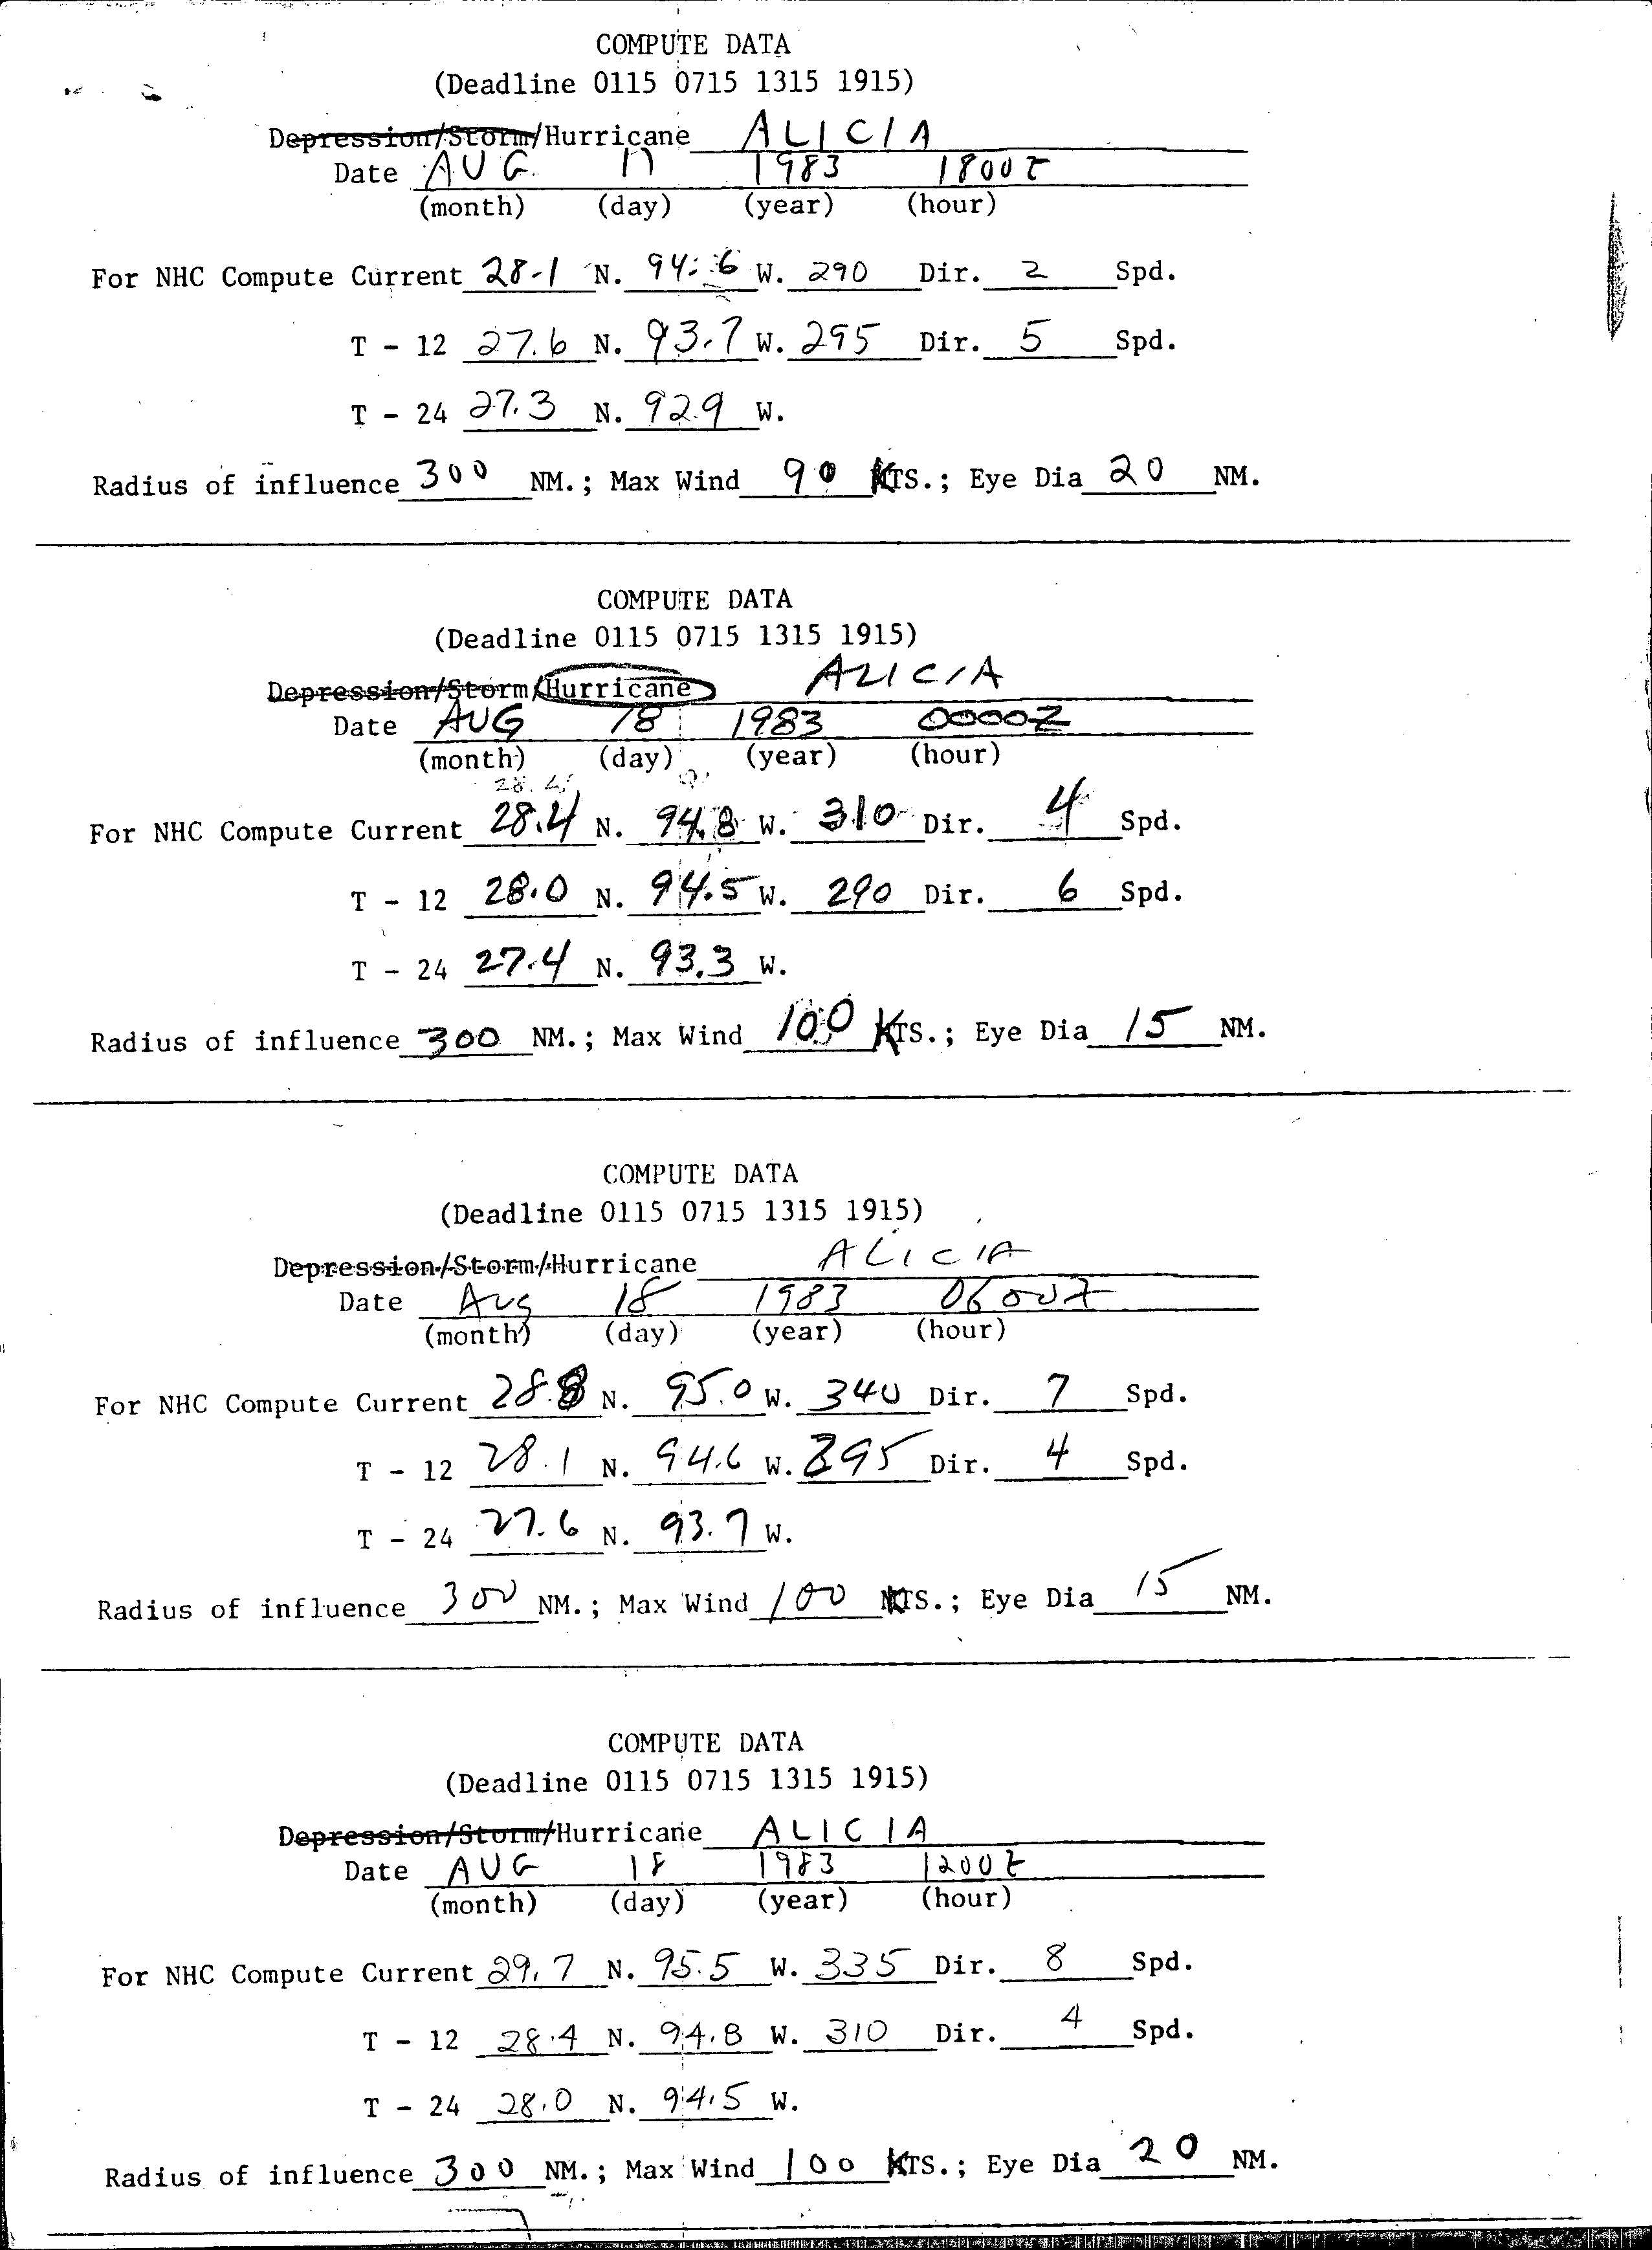 COMPUTE DATA
(Deadline 0115 0715 1315 1915)
Depression/Storm/Hurricane ALICIA
Date AUG 17 1983 1800Z
(month) (day) (year) (hour)
For NHC Compute Current 28.1 N. 94.6 W. 290 Dir. 2 Spd.
T - 12 27.6 N. 93.7 W. 295 Dir. 5 Spd.
T - 24 27.3 N. 92.9 W.
Radius of influence 300 NM.; Max Wind 90 KTS.; Eye Dia 20 NM.
COMPUTE DATA
(Deadline 0115 0715 1315 1915)
Depression/Storm/Hurricane ALICIA
Date AUG 18 1983 0000Z
(month) (day) (year) (hour)
28.4
For NHC Compute Current 28.4 N. 94.8 W. 310 Dir. 4 Spd.
T - 12 28.0 N. 94.5 W. 290 Dir. 6 Spd.
T - 24 27.4 N. 93.3 W.
Radius of influence 300 NM.; Max Wind 100 KTS.; Eye Dia 15 NM.
COMPUTE DATA
(Deadline 0115 0715 1315 1915)
Depression/Storm/Hurricane ALICIA
Date Aug 18 1983 0600Z
(month) (day) (year) (hour)
For NHC Compute Current 28.8 N. 95.0 W. 340 Dir. 7 Spd.
T - 12 28.1 N. 94.6 W. 295 Dir. 4 Spd.
T - 24 27.6 N. 93.7 W.
Radius of influence 300 NM.; Max Wind 100 KTS.; Eye Dia 15 NM.
COMPUTE DATA
(Deadline 0115 0715 1315 1915)
Depression/Storm/Hurricane ALICIA
Date AUG 18 1983 1200Z
(month) (day) (year) (hour)
For NHC Compute Current 29.7 N. 95.5 W. 335 Dir. 8 Spd.
T - 12 28.4 N. 94.8 W. 310 Dir. 4 Spd.
T - 24 28.0 N. 94.5 W.
Radius of influence 300 NM.; Max Wind 100 KTS.; Eye Dia 20 NM.